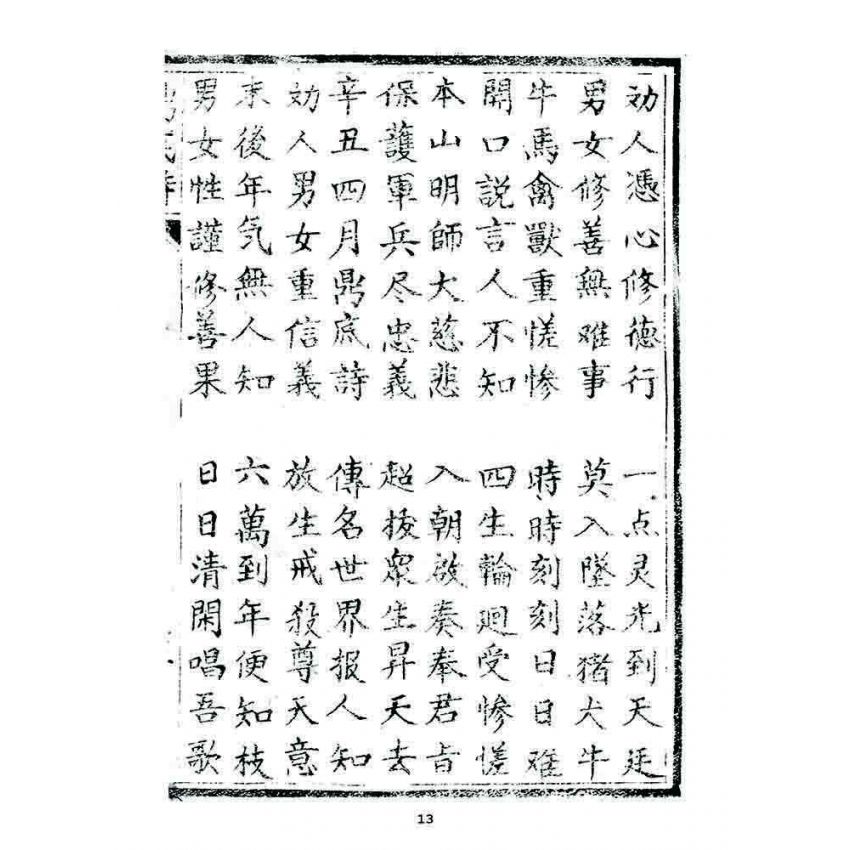 劝人憑心修德行 一点灵光到天廷
男女修善無难事 莫入墜落猪犬牛
牛馬禽獸重慌惨 時時刻刻日日难
開口説言人不知 四生輪廻受惨慌
本山明師大慈悲 入朝啟奏奉君旨
保護軍兵尽忠義 超拔眾生昇天去
辛丑四月鼎底詩 傳名世界报人知
劝人男女重信義 放生戒殺尊天意
末後年気無人知 六萬到年便知枝
男女性謹修善果 日日清閑唱吾歌
13